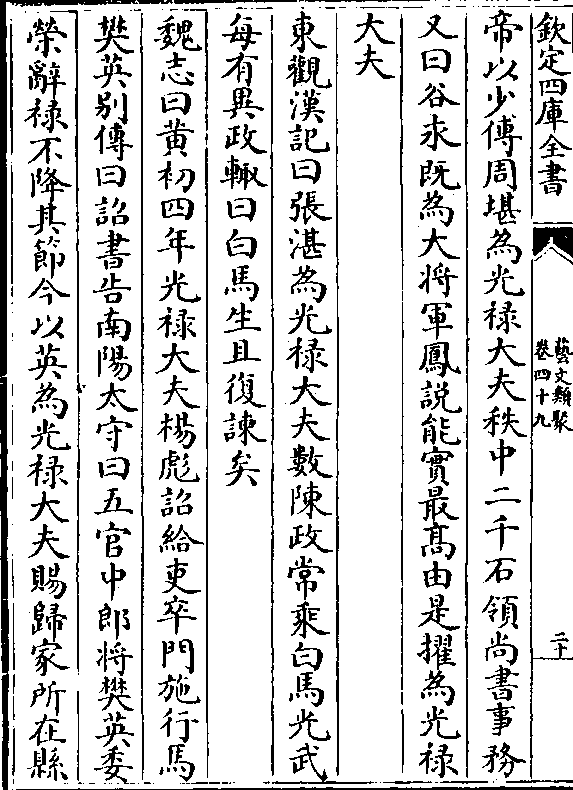 欽定四庫全書
藝文類聚
卷四十九
二十
帝以少傅周堪為光禄大夫秩中二千石領尚書事務
又曰谷永既為大将軍鳳說能實最髙由是擢為光禄
大夫
東觀漢記曰張湛為光禄大夫數陳政常乘白馬光武
每有異政輙曰白馬生且復諌矣
魏志曰黄初四年光禄大夫楊彪詔給吏卒門施行馬
樊英别傳曰詔書告南陽太守曰五官中郎将樊英委
榮辭禄不降其節今以英為光禄大夫賜歸家所在縣